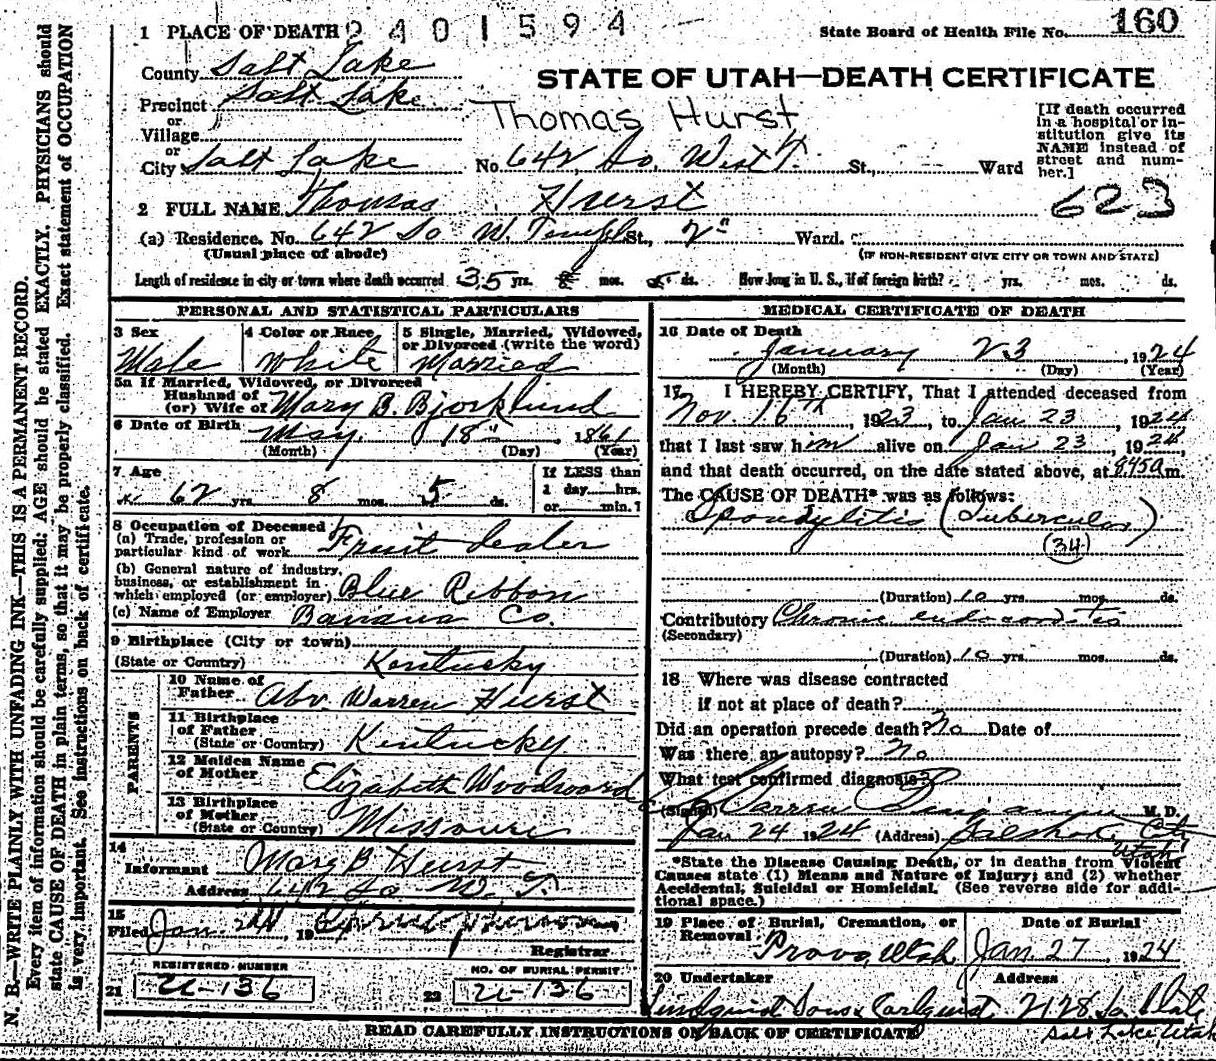 N. B.—WRITE PLAINLY WITH UNFADING INK—THIS IS A PERMANENT RECORD.
Every item of information should be carefully supplied; AGE should be stated EXACTLY. PHYSICIANS should
state CAUSE OF DEATH in plain terms, so that it may be properly classified. Exact statement of OCCUPATION
is very important. See instructions on back of certificate.
2401594
State Board of Health File No. 160
1 PLACE OF DEATH
County Salt Lake
STATE OF UTAH—DEATH CERTIFICATE
Precinct Salt Lake
or
Village
or
Thomas Hurst
[If death occurred in a hospital or institution give its NAME instead of street and number.]
City Salt Lake No. 642 So. West T. St., Ward
623
2 FULL NAME Thomas Hurst
(a) Residence. No. 642 So W. Temple St., 2" Ward.
(Usual place of abode) (IF NON-RESIDENT GIVE CITY OR TOWN AND STATE)
Length of residence in city or town where death occurred 35 yrs. mos. ds. How long in U. S., if of foreign birth? yrs. mos. ds.
PERSONAL AND STATISTICAL PARTICULARS
3 Sex Male
4 Color or Race White
5 Single, Married, Widowed, or Divorced (write the word) Married
5a If Married, Widowed, or Divorced
Husband of
(or) Wife of Mary B. Bjorklund
6 Date of Birth May 18" 1861
(Month) (Day) (Year)
7 Age 62 yrs. 8 mos. 5 ds.
If LESS than
1 day hrs.
or min.?
8 Occupation of Deceased
(a) Trade, profession or
particular kind of work Fruit dealer
(b) General nature of industry,
business, or establishment in
which employed (or employer) Blue Ribbon
(c) Name of Employer Banana Co.
9 Birthplace (City or town)
(State or Country) Kentucky
PARENTS
10 Name of
Father Abv. Warren Hurst
11 Birthplace
of Father
(State or Country) Kentucky
12 Maiden Name
of Mother Elizabeth Woodward
13 Birthplace
of Mother
(State or Country) Missouri
14
Informant Mary B Hurst
Address 642 So W. T.
15
Filed Jan. 24, 19
Registrar
REGISTERED NUMBER
21 U-136
NO. OF BURIAL PERMIT
22 U-136
MEDICAL CERTIFICATE OF DEATH
16 Date of Death
January 23, 1924
(Month) (Day) (Year)
17 I HEREBY CERTIFY, That I attended deceased from
Nov. 16th, 1923, to Jan 23, 1924
that I last saw him alive on Jan 23, 1924,
and that death occurred, on the date stated above, at 8.45a m.
The CAUSE OF DEATH* was as follows:
Spondylitis (Tubercular)
(34)
(Duration) 10 yrs. mos. ds.
Contributory Chronic endocarditis
(Secondary)
(Duration) 10 yrs. mos. ds.
18 Where was disease contracted
if not at place of death?
Did an operation precede death? No Date of
Was there an autopsy? No
What test confirmed diagnosis?
(Signed) Warren Benjamin M. D.
Jan 24 1924 (Address) Salt Lake City
Utah
*State the Disease Causing Death, or in deaths from Violent
Causes state (1) Means and Nature of Injury; and (2) whether
Accidental, Suicidal or Homicidal. (See reverse side for addi-
tional space.)
19 Place of Burial, Cremation, or
Removal Provo, Utah
Date of Burial
Jan. 27 1924
20 Undertaker Address
Lindquist Sons & Carlquist 2128 So. State
Salt Lake, Utah
READ CAREFULLY INSTRUCTIONS ON BACK OF CERTIFICATE